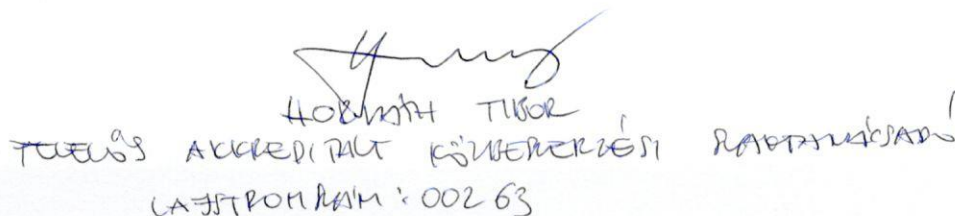 HORVÁTH TIBOR
FELELŐS AKKREDITÁLT KÖZBESZERZÉSI SZAKTANÁCSADÓ
LAJSTROMSZÁM: 00263